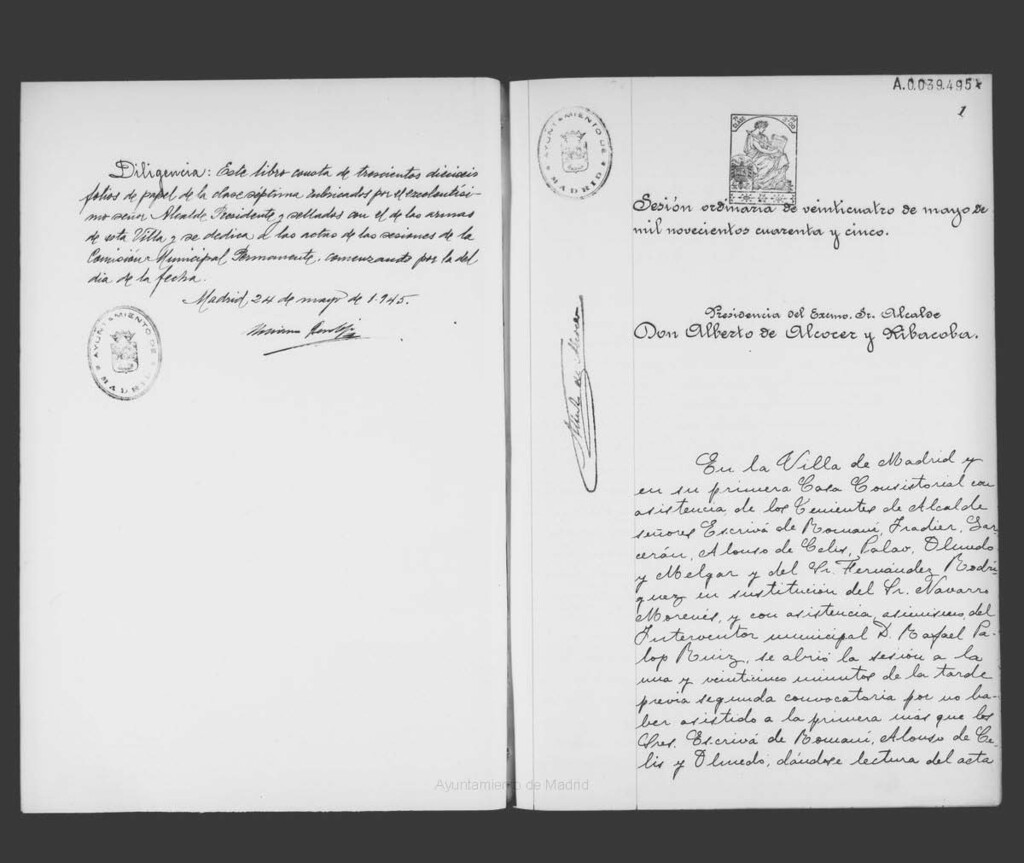 Diligencia: Este libro consta de trescientos dieciseis
folios de papel de la clase séptima rubricados por el excelentísi-
mo señor Alcalde Presidente y sellados con el de las armas
de esta Villa y se dedica a las actas de las sesiones de la
Comisión Municipal Permanente, comenzando por la del
día de la fecha.
Madrid, 24 de mayo de 1.945.
AYUNTAMIENTO DE MADRID
A.0.039.495
1
AYUNTAMIENTO DE MADRID
Sesión ordinaria de veinticuatro de mayo de
mil novecientos cuarenta y cinco.
Presidencia del Excmo. Sr. Alcalde
Don Alberto de Alcocer y Ribacoba.
En la Villa de Madrid y
en su primera Casa Consistorial con
asistencia de los Tenientes de Alcalde
señores Escrivá de Romaní, Fradier, Gar-
cerán, Alonso de Celis, Palao, Olmedo
y Melgar y del Sr. Fernández Rodrí-
guez en sustitución del Sr. Navarro
Morenés, y con asistencia, asimismo, del
Interventor municipal D. Rafael Pa-
lop Ruiz, se abrió la sesión a la
una y veinticinco minutos de la tarde
previa segunda convocatoria por no ha-
ber asistido a la primera más que los
Sres. Escrivá de Romaní, Alonso de Ce-
lis y Olmedo, dándose lectura del acta
Ayuntamiento de Madrid